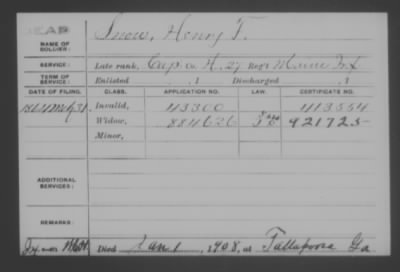 DEAD
NAME OF SOLDIER: Snow, Henry T.
SERVICE: Late rank, Cap Co. H, 27 Reg't Maine Inf
TERM OF SERVICE: Enlisted , 1 Discharged , 1
DATE OF FILING. CLASS. APPLICATION NO. LAW. CERTIFICATE NO.
Invalid, 43300 413554
Widow, 884626 921725
Minor,
ADDITIONAL SERVICES:
REMARKS:
Died Jan 1, 1908, at Tallapoosa Ga